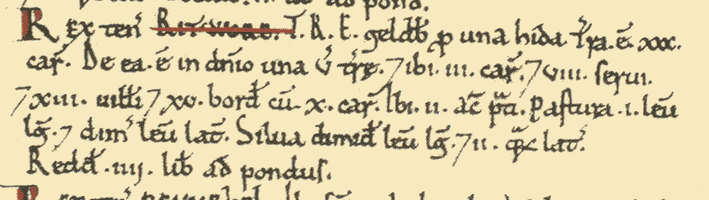 ad pond.
Rex ten̄ T.R.E. geldb̄ ꝑ una hida. Tr̄a. ē. xxx.
car̄. De ea. ē in dn̄io una v̄ træ. 7 ibi. iii. car̄. 7 viii. serui.
7 xiii. uill̄i 7 xv. bord̄ cū. x. car̄. Ibi. ii. ac̄ p̄ti. Pastura. i. leū
lḡ. 7 dim̄ leū lat̄. Silua dimid̄ leū lḡ. 7 ii. q̄ꝫ lat̄.
Redd̄. iiij. lib̄ ad pondus.